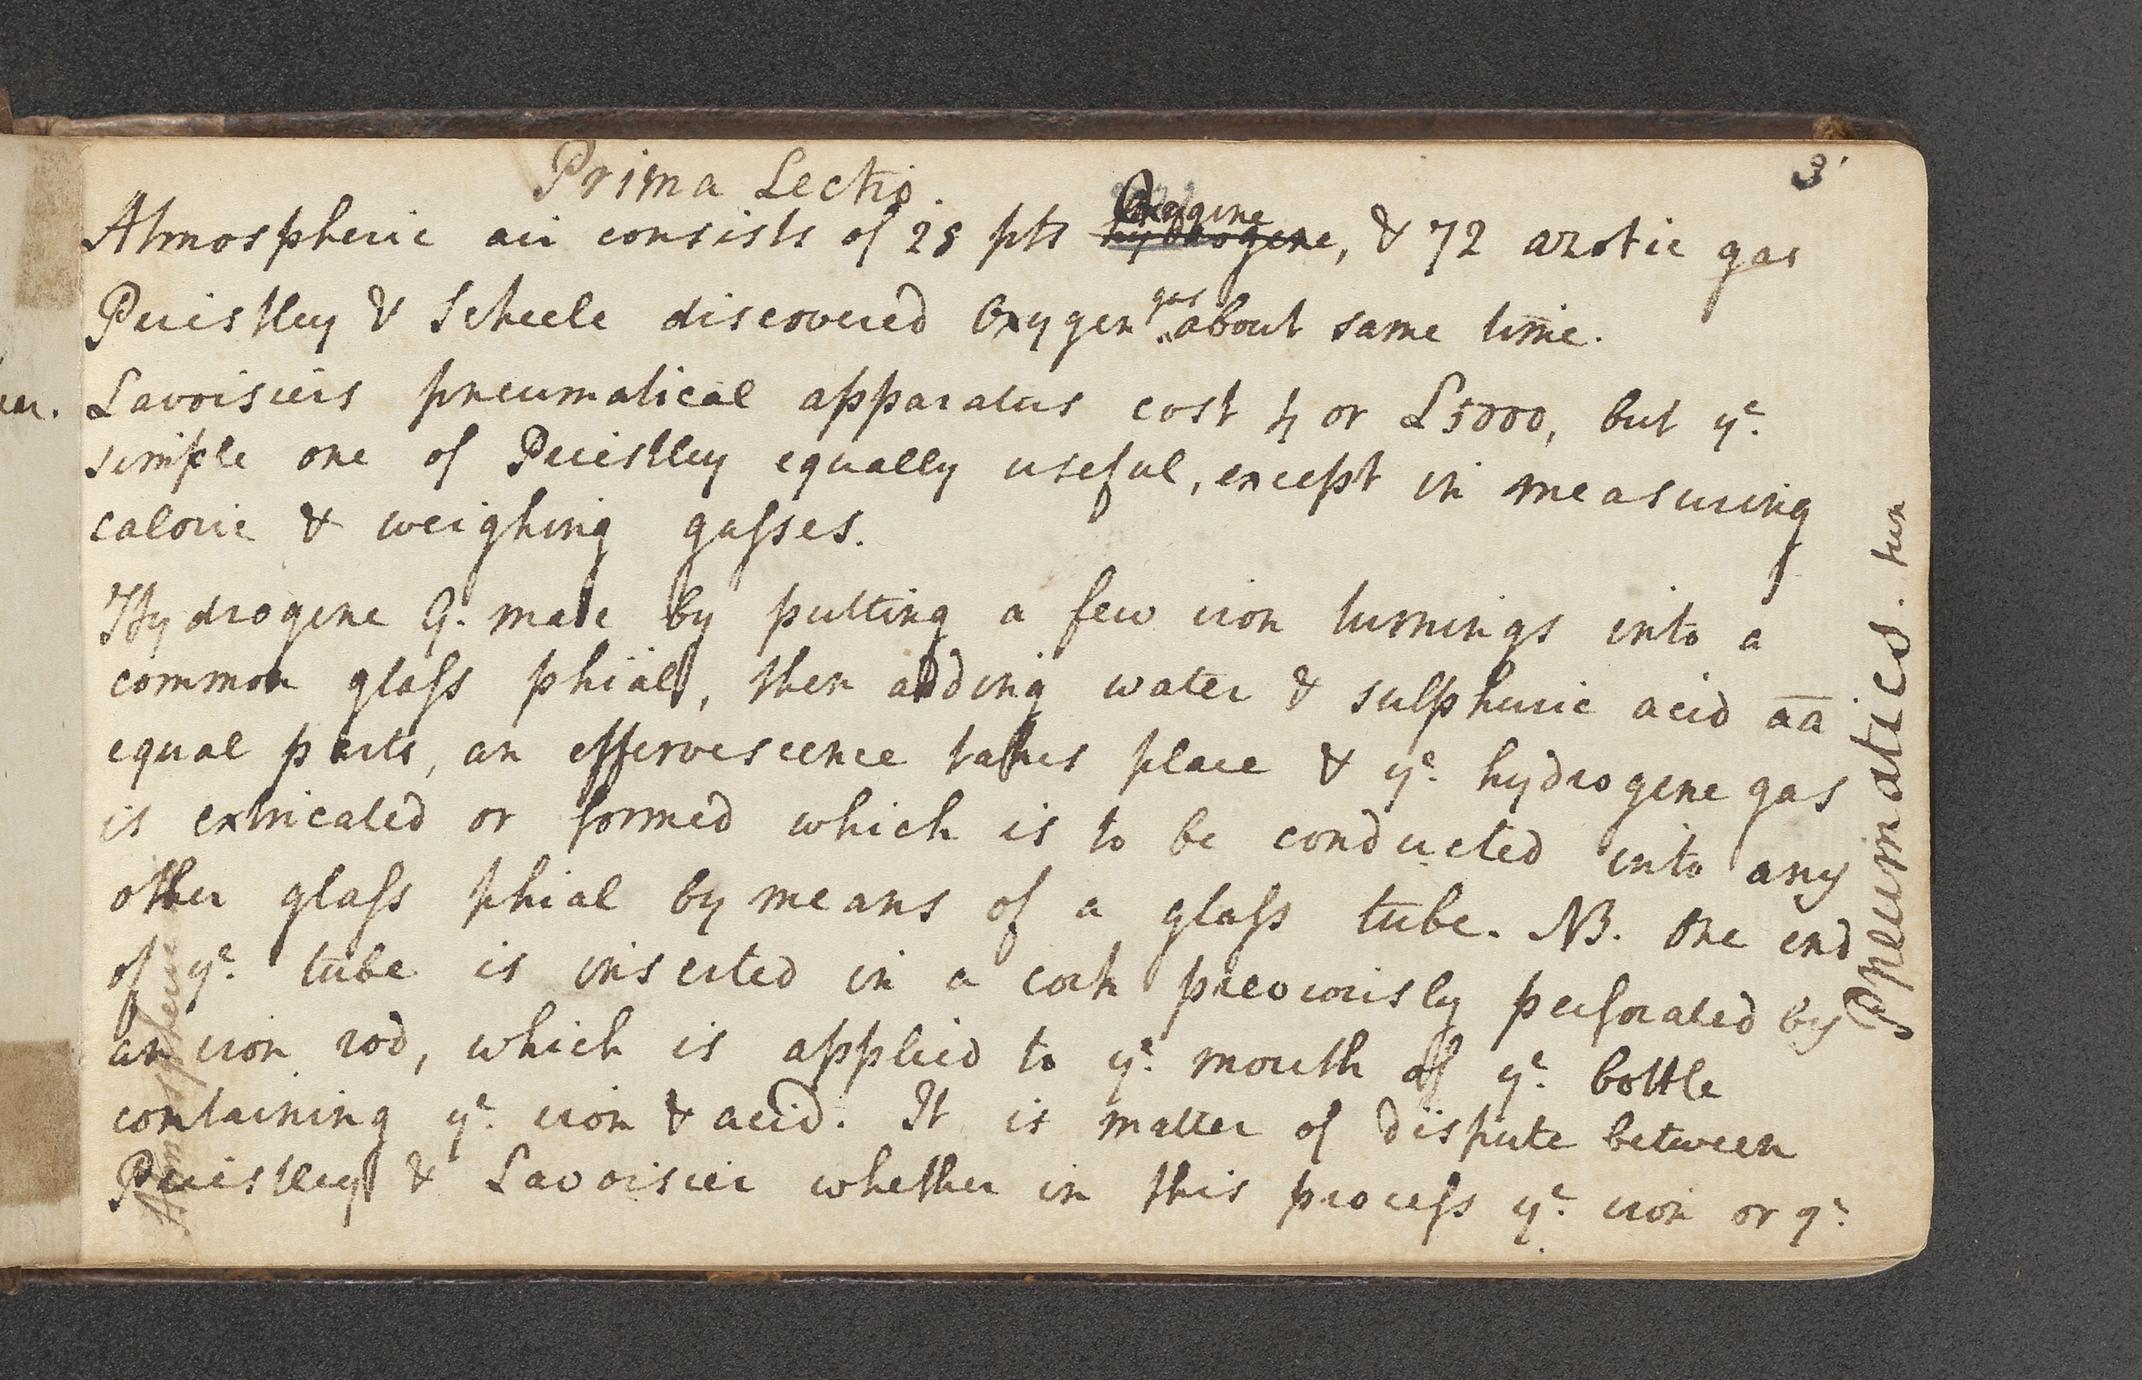 3
Prima Lectio
Atmospheric air consists of 28 pts hydrogene Oxygine, & 72 azotic gas
Preistley & Scheele discovered Oxygen gas about same time.
Lavoisiers pneumatical apparatus cost 4 or £5000, but ye.
simple one of Preistley equally useful, except in measuring
caloric & weighing gasses.
Hydrogene G. made by putting a few iron turnings into a
common glass phial, then adding water & sulphuric acid aa
equal parts, an effervescence takes place & ye. hydrogene gas
is extricated or formed which is to be conducted into any
other glass phial by means of a glass tube. NB. One end
of ye. tube is inserted in a cork previously perforated by
an iron rod, which is applied to ye. mouth of ye. bottle
containing ye. iron & acid. It is matter of dispute between
Preistley & Lavoisier whether in this process ye. iron or ye.
Pneumatics.
Atmospheric